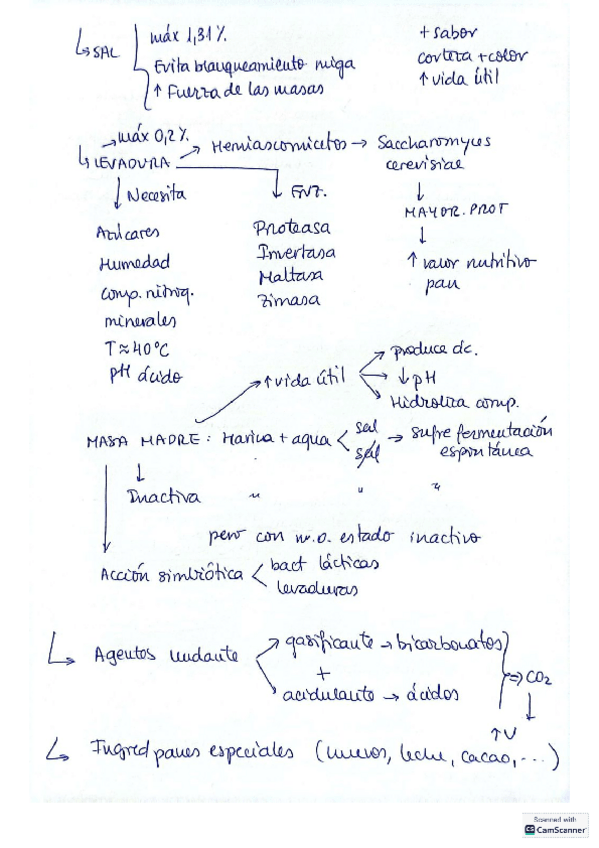 ↳ SAL
máx 1,31%.
Evita blanqueamiento miga
↑ Fuerza de las masas
+ sabor
corteza + color
↑ vida útil
→ máx 0,2%.
↳ LEVADURA → Hemiascomicetos → Saccharomyces
cerevisiae
↓ Necesita
Azúcares
Humedad
comp. nitrog.
minerales
T ≈ 40°C
pH ácido
↓ ENZ.
Proteasa
Invertasa
Maltasa
Zimasa
↓
MAYOR. PROT
↓
↑ valor nutritivo
pan
↑ vida útil
→ produce ác.
→ ↓ pH
→ Hidroliza comp.
MASA MADRE: Harina + agua < sal
sal → sufre fermentación
espontánea
↓
Inactiva " " "
pero con m.o. estado inactivo
Acción simbiótica < bact lácticas
levaduras
↳ Agentes mudante
→ gasificante → bicarbonatos
+
→ acidulante → ácidos
⇒ CO2
↓
↑V
↳ Ingred panes especiales (huevos, leche, cacao, ...)
Scanned with
CS CamScanner